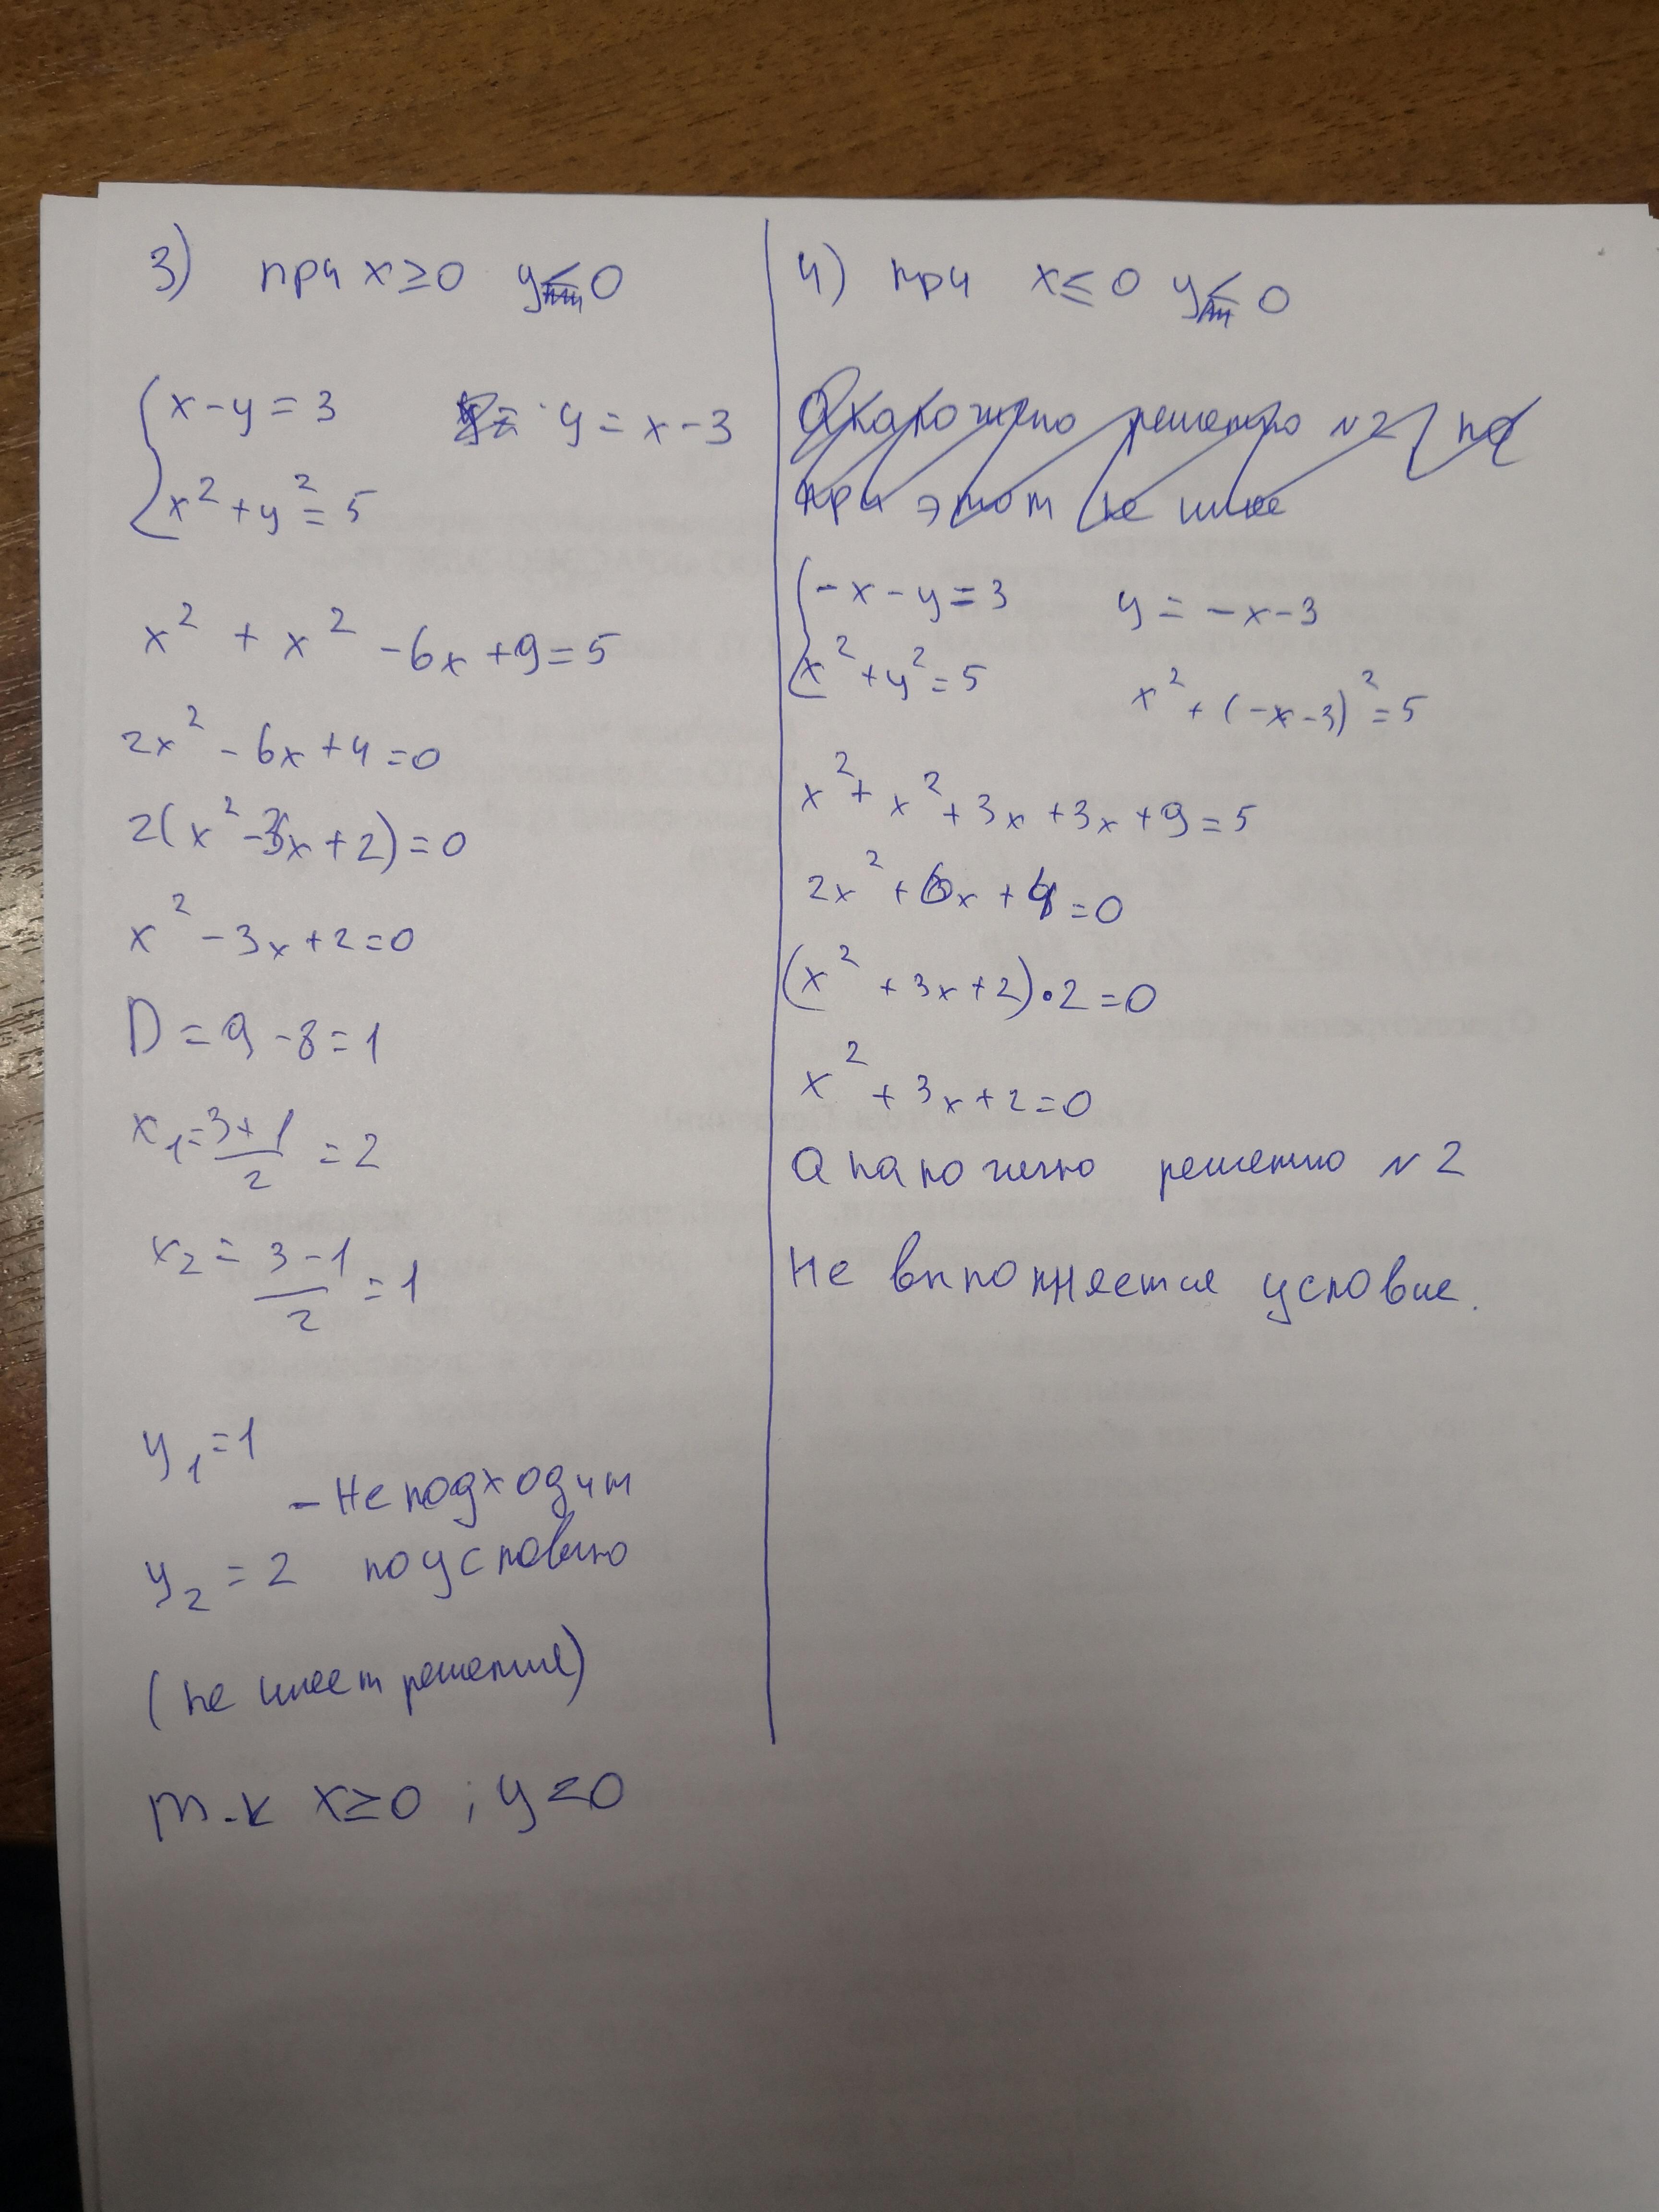 3) при x ≥ 0 y ≤ 0
x - y = 3 y = x - 3
x² + y² = 5
x² + x² - 6x + 9 = 5
2x² - 6x + 4 = 0
2(x² - 3x + 2) = 0
x² - 3x + 2 = 0
D = 9 - 8 = 1
x₁ = (3+1)/2 = 2
x₂ = (3-1)/2 = 1
y₁ = 1
- Не подходит
y₂ = 2 по условию
(не имеет решение)
т.к x ≥ 0 ; y ≤ 0
4) при x ≤ 0 y ≤ 0
решению №2
при этом не име
-x - y = 3 y = -x - 3
x² + y² = 5 x² + (-x - 3)² = 5
x² + x² + 3x + 3x + 9 = 5
2x² + 6x + 4 = 0
(x² + 3x + 2) • 2 = 0
x² + 3x + 2 = 0
аналогично решению №2
не выполняется условие.